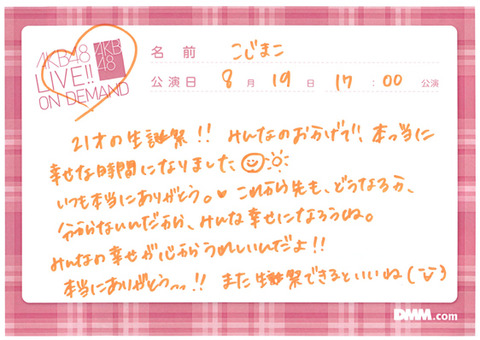 AKB48
LIVE!!
ON DEMAND
AKB
48
名前 こじまこ
公演日 8月19日 17:00 公演
21才の生誕祭!! みんなのおかげで、本っ当に
幸せな時間になりました
いつも本当にありがとう。これから先も、どうなるか、
分からないんだから、みんな幸せになろうね。
みんなの幸せが心からうれしいんだよ!!
本当にありがとう〜!! また生誕祭できるといいね
DMM.com